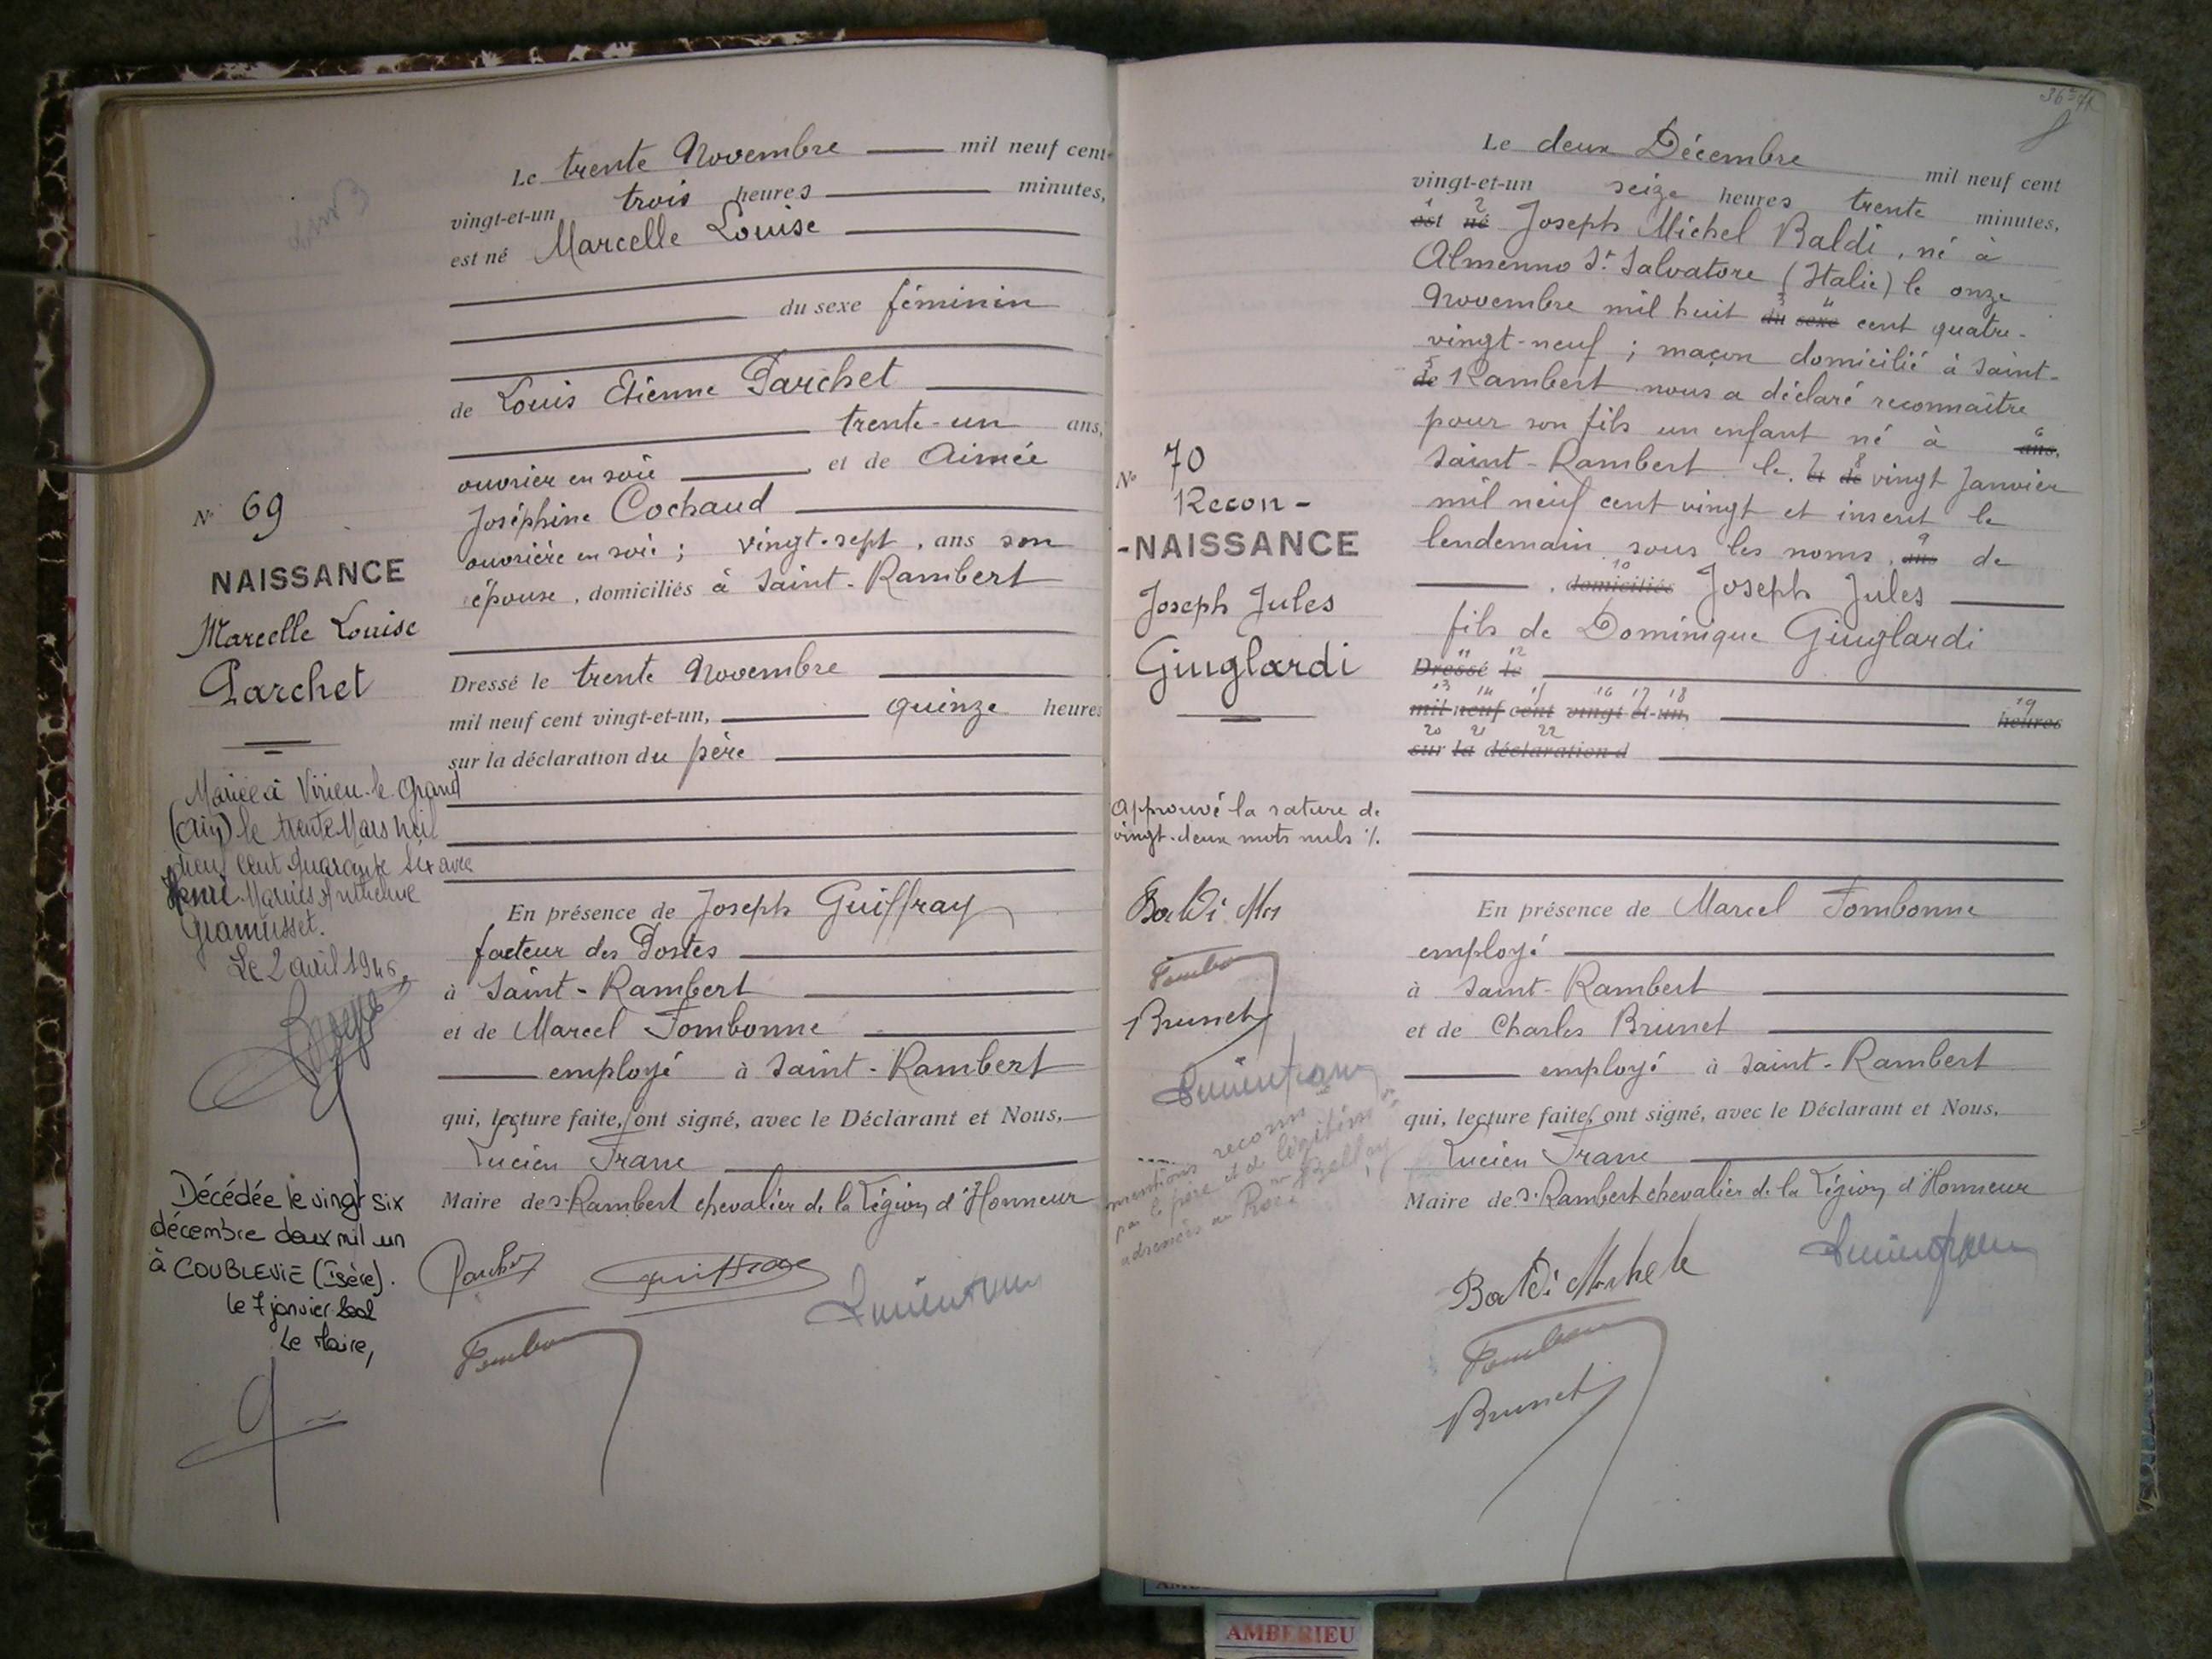 Le trente Novembre mil neuf cent
vingt-et-un trois heures minutes,
est né Marcelle Louise
du sexe féminin
de Louis Etienne Parchet
trente-un ans,
ouvrier en soie , et de Aimée
Joséphine Cochaud
ouvrière en soie ; vingt-sept , ans son
épouse , domiciliés à Saint-Rambert
Dressé le trente Novembre
mil neuf cent vingt-et-un, quinze heures
sur la déclaration du père
En présence de Joseph Guiffray
facteur des Postes
à Saint-Rambert
et de Marcel Tombonne
employé à Saint-Rambert
qui, lecture faite, ont signé, avec le Déclarant et Nous,
Lucien Franc
Maire de St Rambert chevalier de la Légion d'Honneur
Parchet
Guiffray
No 69
NAISSANCE
Marcelle Louise
Parchet
Mariée à Virieu-le-Grand
(Ain) le trente Mars mil
neuf cent quarante six avec
Henri Marius
Gramusset.
Le 2 avril 1946
Décédée le vingt six
décembre deux mil un
à COUBLEVIE (Isère).
le 7 janvier 2002
Le Maire,
Le deux Décembre mil neuf cent
vingt-et-un seize heures trente minutes,
1 2
est né Joseph Michel Baldi, né à
Almenno St Salvatore (Italie) le onze
3 4
Novembre mil huit du sexe cent quatre-
vingt-neuf ; maçon domicilié à Saint-
5
de Rambert nous a déclaré reconnaître
pour son fils un enfant né à ans,
6
7 8
Saint-Rambert le, et de vingt Janvier
mil neuf cent vingt et inscrit le
9
lendemain sous les noms, ans de
10
, domiciliés Joseph Jules
fils de Dominique Giuglardi
11 12
Dressé le
13 14 15 16 17 18 19
mil neuf cent vingt-et-un, heures
20 21 22
sur la déclaration d
En présence de Marcel Tombonne
employé
à Saint-Rambert
et de Charles Brunet
employé à Saint-Rambert
qui, lecture faite, ont signé, avec le Déclarant et Nous,
Lucien Franc
Maire de St Rambert chevalier de la Légion d'Honneur
Baldi Michele
Brunet
No 70
Recon-
-NAISSANCE
Joseph Jules
Giuglardi
Approuvé la rature de
vingt-deux mots nuls ./.
Baldi
Brunet
mentions reconn
par le père et de légitim
adressées au Belley
AMBERIEU